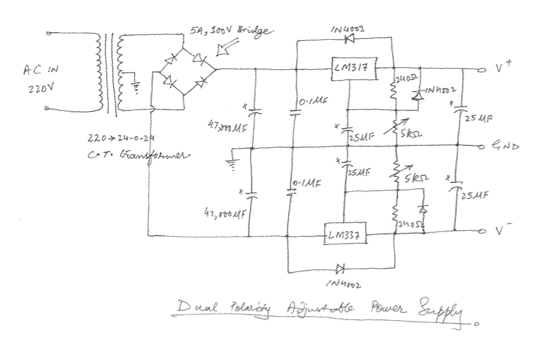 5A, 100V Bridge
1N4002
AC IN
220V
LM317
240Ω
1N4002
V+
*
47,000MF
0.1MF
*
25MF
5kΩ
*
25MF
220→24-0-24
C.T. transformer
GND
*
47,000MF
0.1MF
*
25MF
5kΩ
*
25MF
LM337
240Ω
V-
1N4002
Dual Polarity Adjustable Power Supply.